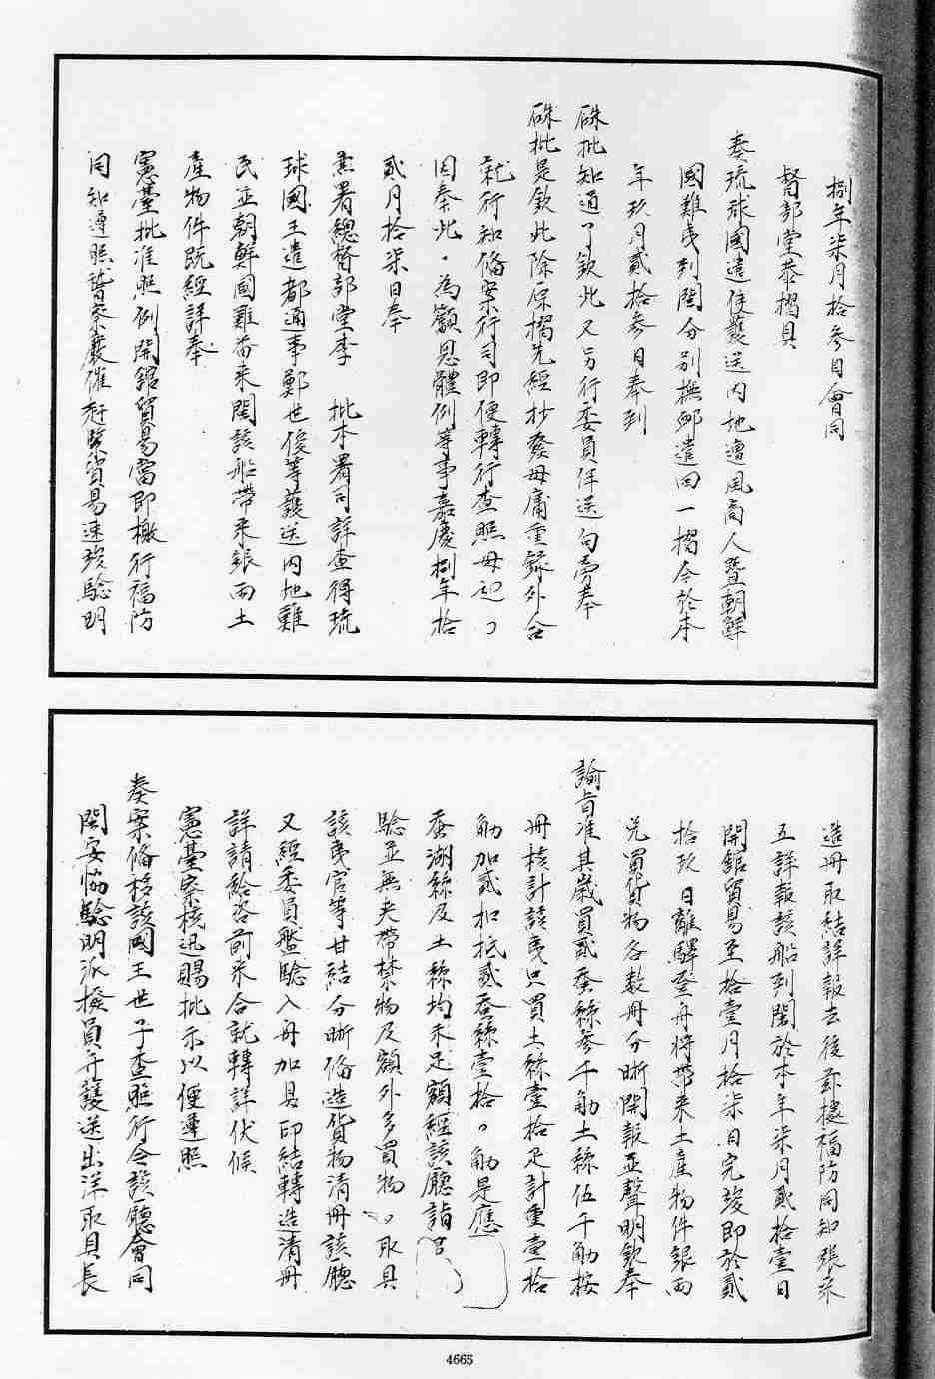 捌年柒月拾參日會同
督部堂恭摺具
奏琉球國遣使護送內地遭風商人暨朝鮮
國難夷到閩分別撫卹遣回一摺今於本
年玖月貳拾參日奉到
硃批知道了欽此又另行委員伴送句旁奉
硃批是欽此除原摺先經抄發毋庸重錄外合
就行知備案行司即便轉行查照毋迟
因奉此。為籲恩體例等事嘉慶捌年拾
貳月拾柒日奉
兼署總督部堂李 批本署司詳查得琉
球國王遣都通事鄭世俊等護送內地難
民並朝鮮國難番來閩該船帶來銀兩土
產物件既經詳奉
憲臺批准照例開館貿易當即檄行福防
同知遵照督察嚴催赶緊貿易速竣驗明
造冊取結詳報去後茲據福防同知張采
五詳報該船到閩於本年柒月貳拾壹日
開館貿易至拾壹月拾柒日完竣即於貳
拾玖日離驛登舟將帶來土產物件銀兩
兌買貨物各數冊分晰開報並聲明欽奉
諭旨准其歲買貳蚕絲參千觔土絲伍千觔按
冊核計該夷只買土絲壹拾足計重壹拾
觔加貳扣抵貳蚕絲壹拾。觔是應
蚕湖絲及土絲均未足額經該廳詣
驗並無夾帶禁物及額外多買物 取具
該夷官等甘結分晰備造貨物清冊該廳
又經委員盤驗入舟加具印結轉造清冊
詳請給咨前來合就轉詳伏候
憲臺察核迅賜批示以便遵照
奏案備核該國王世子查照行令該廳會同
閩安協驗明派撥員弁護送出洋取具長
4665